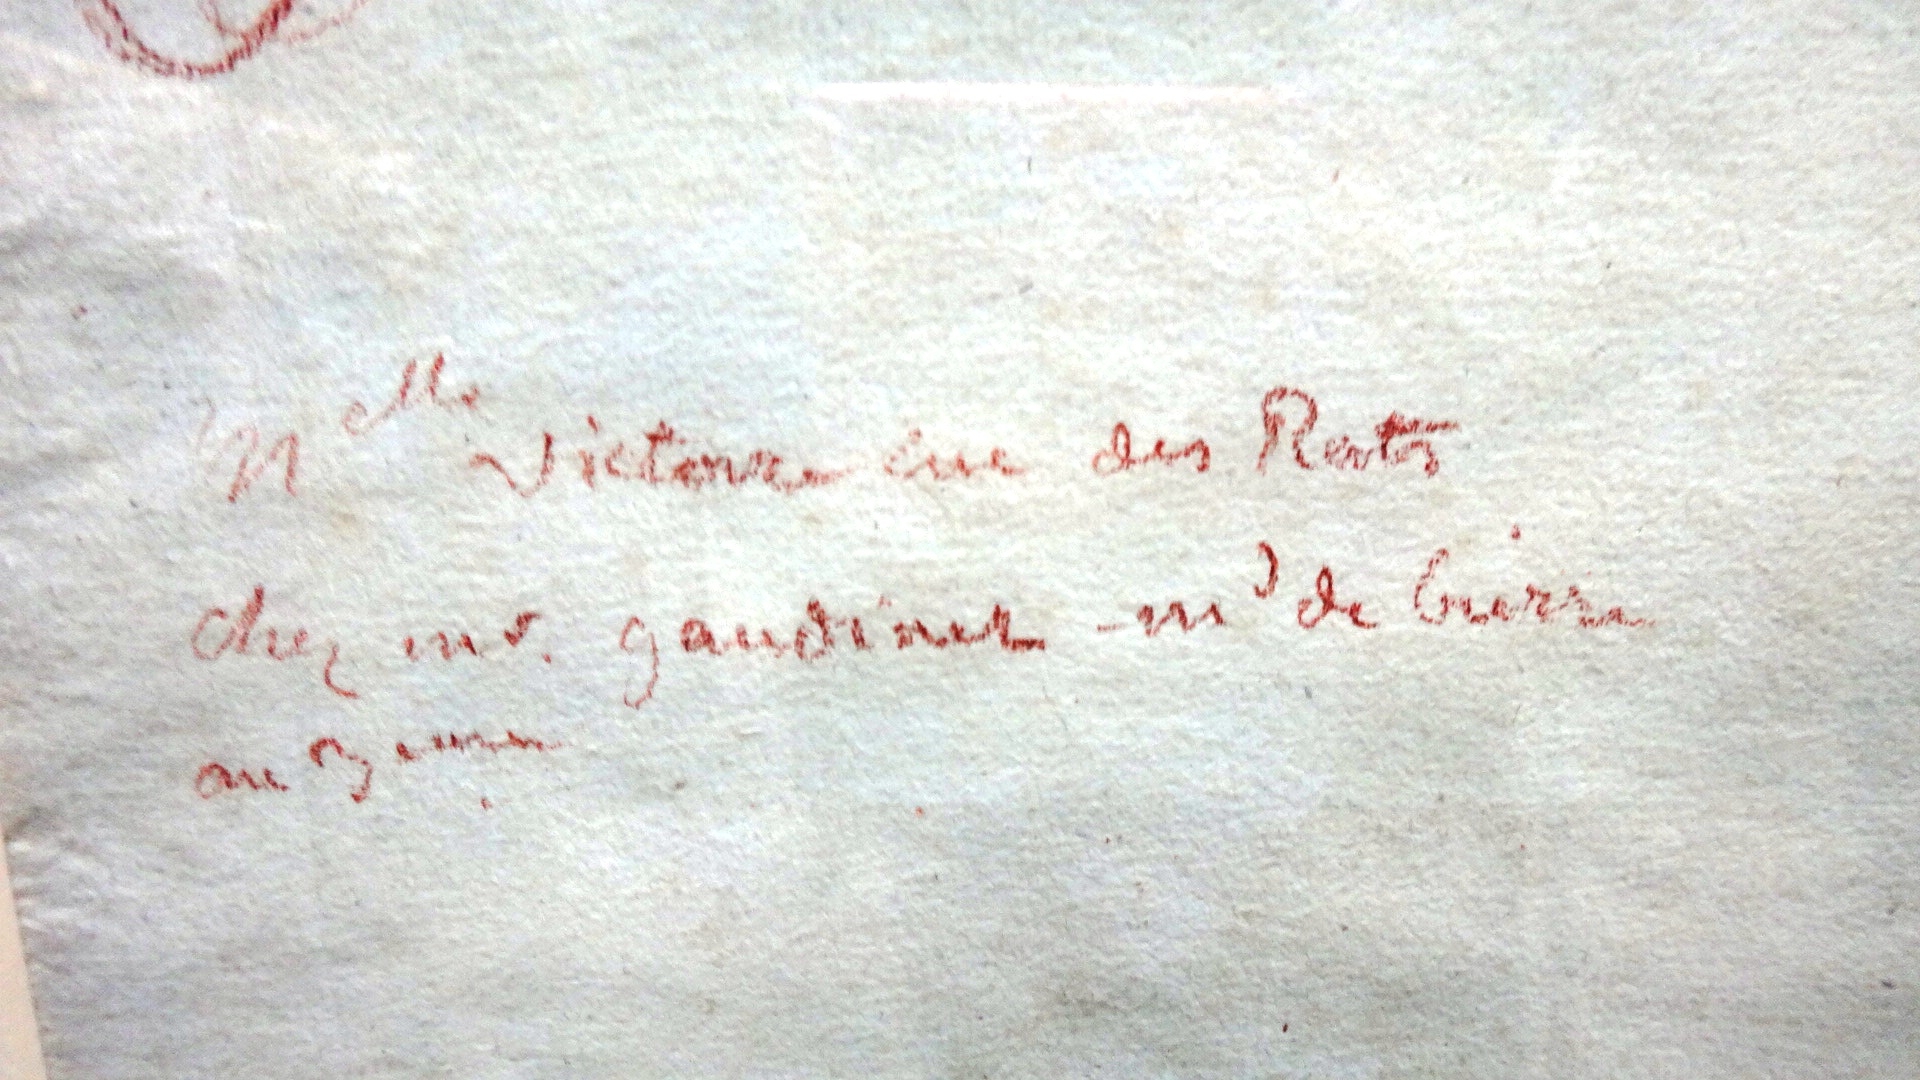 Melle Victoire rue des Rats
chez mr. gaudinet md de bierre
au 3eme